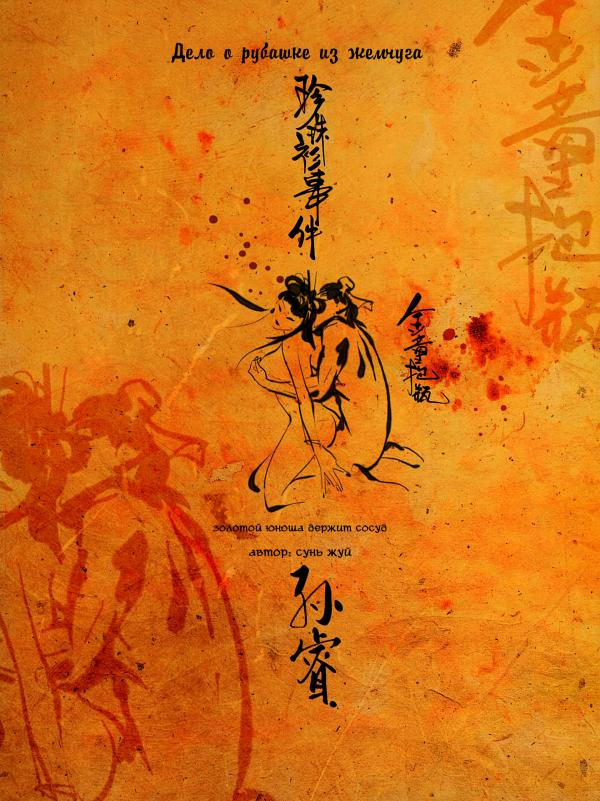 Дело о рубашке из жемчуга
珍珠衫事件
金童抱瓶
金童抱瓶
золотой юноша держит сосуд
автор: сунь жуй
孙睿